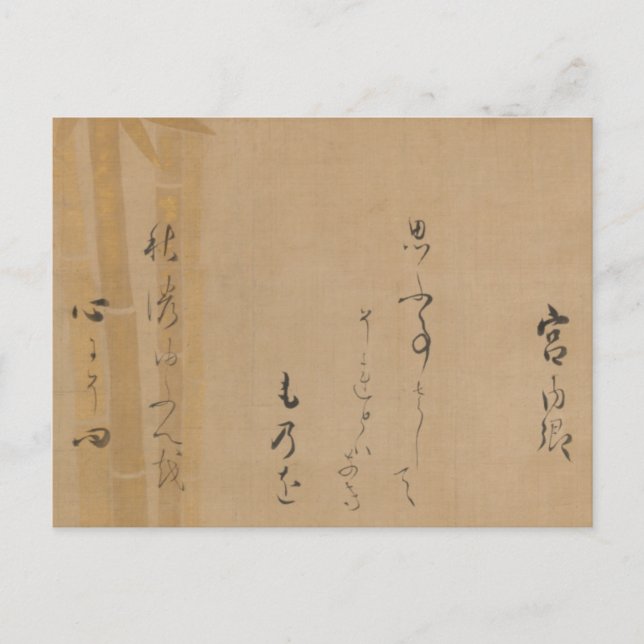 宮内卿
思ふ事さして
それとハなき
も乃を
秋濃ゆふへ越
心にそ問